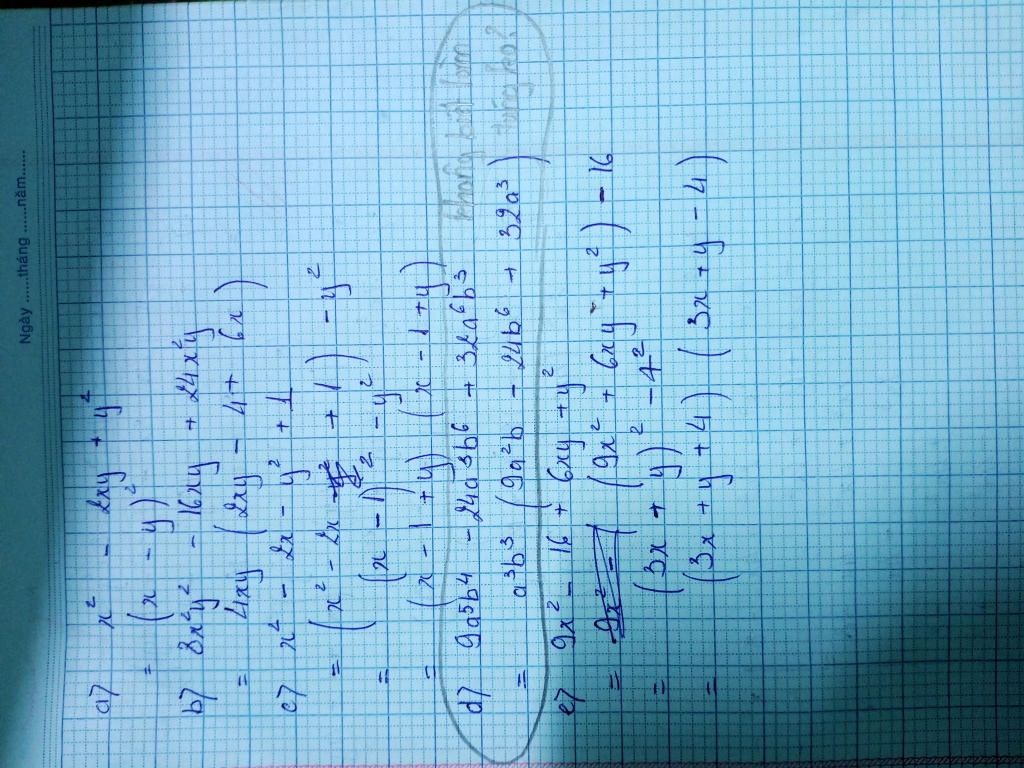 Ngày ......tháng ......năm......
a) x² - 2xy + y²
= (x - y)²
b) 8x²y² - 16xy + 24x²y
= 4xy (2xy - 4 + 6x)
c) x² - 2x - y² + 1
= (x² - 2x + 1) - y²
= (x - 1)² - y²
= (x - 1 + y) (x - 1 + y)
d) 9a⁵b⁴ - 24a³b⁶ + 32a⁶b³ không biết làm
= a³b³ (9a²b - 24b⁶ + 32a³)
e) 9x² - 16 + 6xy + y²
= (9x² + 6xy + y²) - 16
= (3x + y)² - 4²
= (3x + y + 4) (3x + y - 4)